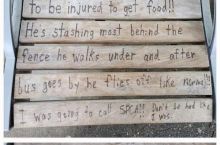 To be injured to get food!!
He's stashing most behind the
fence he walks under and after
bus goes by he flies off like normal!!
I was going to call SPCA!! Don't be had like
I was.